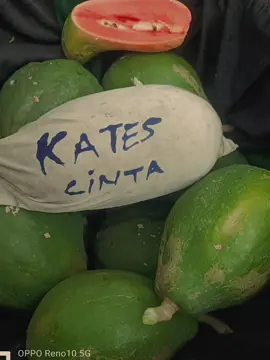 KATES
CINTA
OPPO Reno10 5G